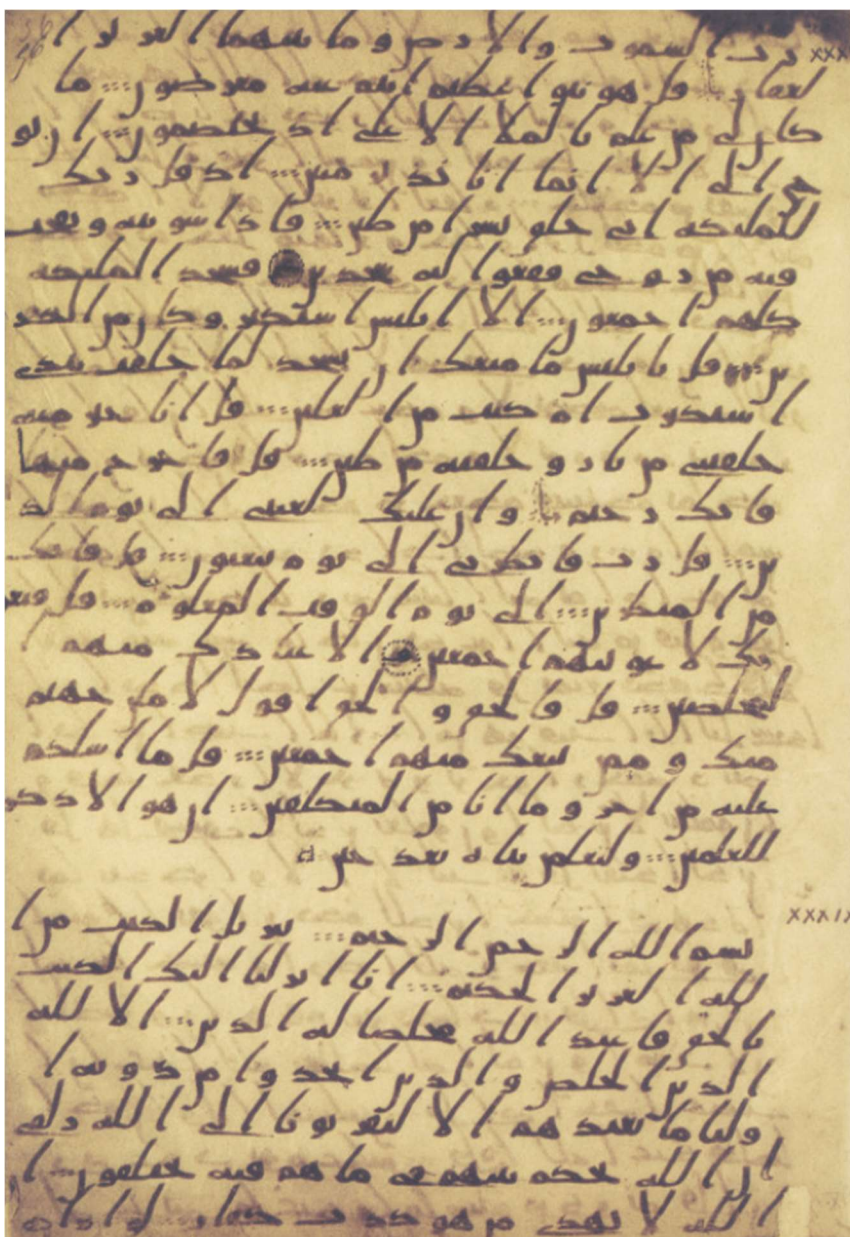 رب السموت والارض وما بينهما العزيز ا XXX
لغفار قل هو نبوا عظيم انتم عنه معرضون ما
كان لي من علم بالملا الاعلى اذ يختصمون ان يو
حى الى الا انما انا نذير مبين اذ قل ربك
للمليكه انى خلق بشرا من طين فاذا سويته ونفخت
فيه من روحى فقعوا له سجدين فسجد المليكه
كلهم اجمعون الا ابليس استكبر وكان من الكفر
ين قل يابليس ما منعك ان تسجد لما خلقت بيدى
استكبرت ام كنت من العلين قل انا خير منه
خلقتنى من نار وخلقته من طين قل فاخرج منها
فانك رجيم وان عليك لعنتى الى يوم الد
ين قل رب فانظرنى الى يوم يبعثون قل فانك
من المنظرين الى يوم الوقت المعلوم قل فبعز
تك لاغوينهم اجمعين الا عبادك منهم ا
لمخلصين قل فالحق والحق اقول لاملن جهنم
منك وممن تبعك منهم اجمعين قل ما اسلكم
عليه من اجر وما انا من المتكلفين ان هو الا ذكر
للعلمين ولتعلمن نباه بعد حين
XXXIX
بسم الله الرحمن الرحيم تنزيل الكتب من ا
لله العزيز الحكيم انا انزلنا اليك الكتب
بالحق فاعبد الله مخلصا له الدين الا لله
الدين الخلص والذين اتخذوا من دونه ا
وليا ما نعبدهم الا ليقربونا الى الله زلفى
ان الله يحكم بينهم فى ما هم فيه يختلفون ا
الله لا يهدى من هو كذب كفار لو اراد